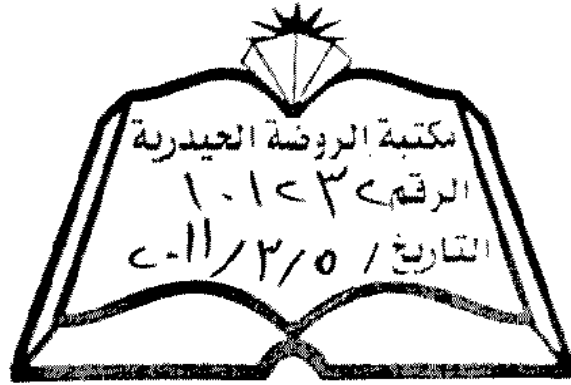 مكتبة الروضة الحيدرية
الرقم ١٠١٢٣٢
التاريخ / ٢٠١١/٣/٥